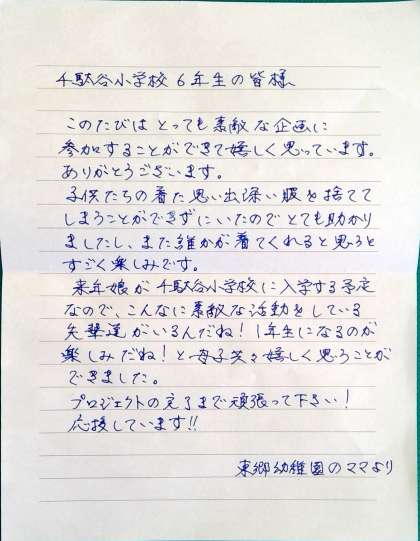 千駄谷小学校6年生の皆様
このたびは とっても素敵な企画に
参加することができて嬉しく思っています。
ありがとうございます。
子供たちの着た思い出深い服を捨てて
しまうことができずにいたので とても助かり
ましたし、また誰かが着てくれると思うと
すごく楽しみです。
来年娘が 千駄谷小学校に入学する予定
なので、こんなに素敵な活動をしている
先輩達がいるんだね! 1年生になるのが
楽しみだね! と母子共々嬉しく思うことが
できました。
プロジェクトの完了まで頑張って下さい!
応援しています!!
東郷幼稚園のママより